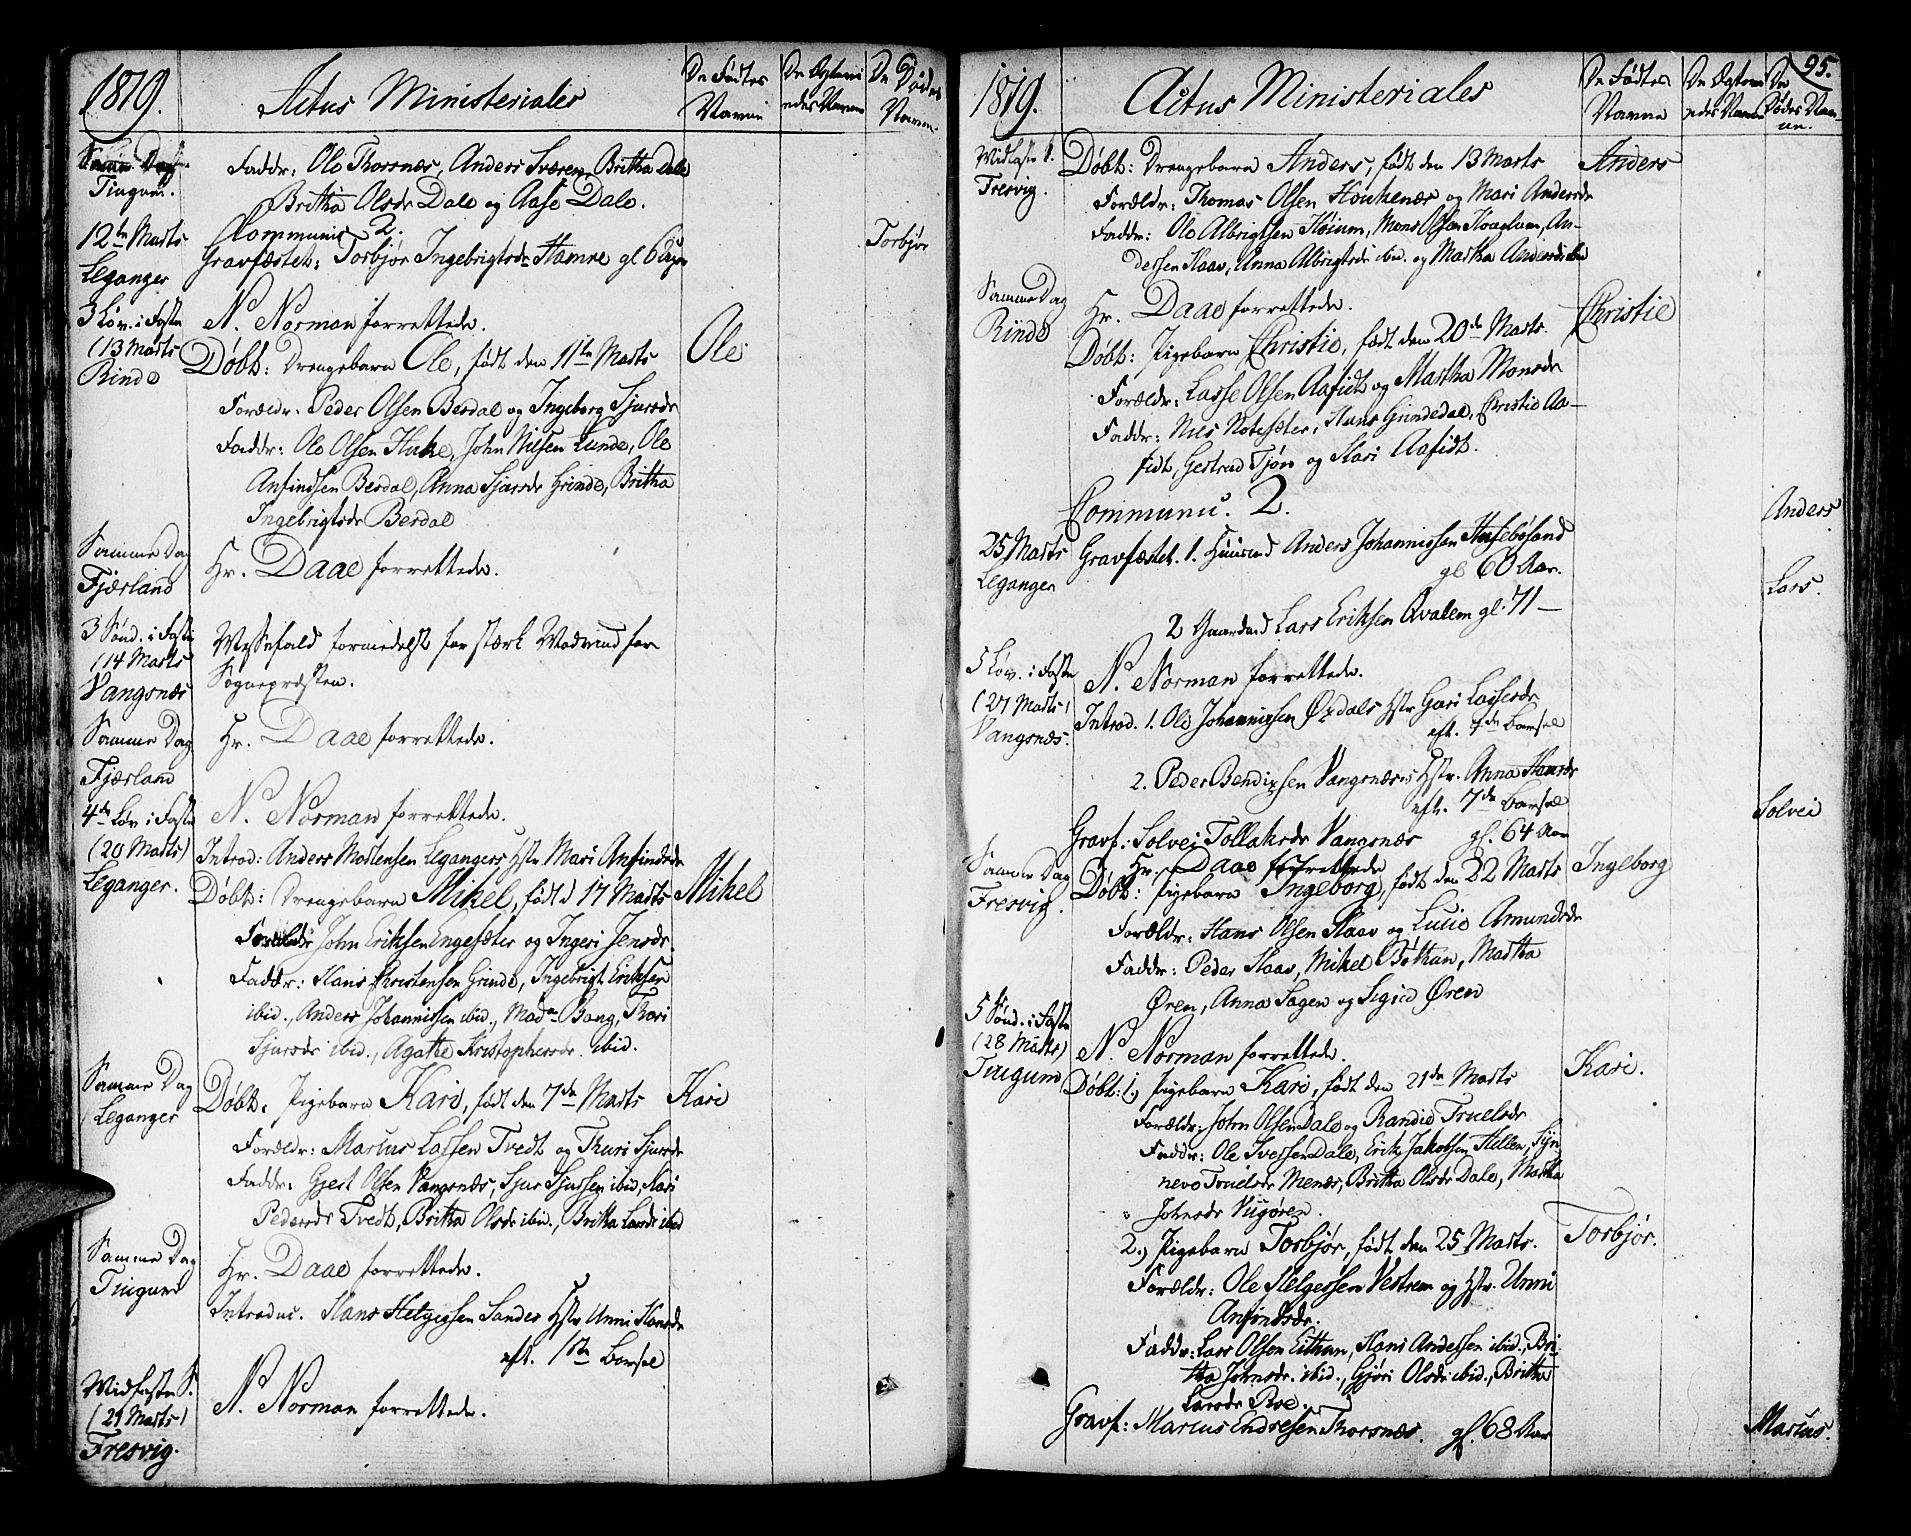 1819.
Actus Ministeriales
De Fødtes Navne
De Egtevi
edes Navne
De Dødes
Navne
Samme Dag
Tingum.
Faddr: Ole Thorsnæs, Anders Sværen, Britha Dale
Britha Olsdr Dale og Aase Dale.
12te Marts
Leganger
Communic 2.
Gravfæstet: Torbjør Ingebrigtsdr Hamre gl 6 Uger
Torbjør
3 Løv. i Faste
(13 Marts
Rinde
N. Norman forrettede.
Døbt: Drengebarn Ole, født den 11te Marts
Ole
Forældr. Peder Olsen Berdal og Ingeborg Sjursdr
Faddr: Ole Olsen Huke, John Nilsen Lunde, Ole
Anfindsen Berdal, Anna Sjursdr Grinde, Britha
Ingebrigtsdr Berdal
Samme Dag
Fjærland
Hr. Daae forrettede.
3 Sønd. i Faste
(14 Marts
Vangsnæs
Messefald formedelst for stærk Modvind for
Sognepræsten.
Samme Dag
Fjærland
Hr. Daae forrettede.
4de Løv i Faste
(20 Marts)
Leganger.
N. Norman forrettede.
Introd: Anders Mortensen Legangers Hstr Mari Anfindsdr
Døbt: Drengebarn Mikel, født d 17 Marts
Mikel
Forældr John Eriksen Engesæter og Ingeri Jensdr.
Faddr: Hans Christensen Grinde, Ingebrigt Eriksen
ibid., Anders Johannissen ibid., Madme Bang, Kari
Sjursdr ibid., Agathe Kristophersdr. ibid.
Samme Dag
Leganger
Døbt. Pigebarn Kari, født den 7de Marts
Kari
Forældr: Marcus Lassen Tvedt og Thuri Sjursdr
Faddr: Gjert Olsen Vangsnæs, Sjur Sjursen ibid, Kari
Pedersdr Tvedt, Britha Olsdr ibid., Britha Larsdr ibid
Samme Dag
Tingum
Hr. Daae forrettede.
Introduc. Hans Helgesen Sandes Hstr Unni Hansdr
eft. 1ste Barsel
Midfaste S.
(21 Marts)
Fresvig.
N. Norman forrettede.
1819.
Actus Ministeriales
De Fødtes
Navne
De Egtevi
edes Navne
De
Dødes Nav
ne.
95.
Midfaste S.
Fresvig
Døbt: Drengebarn Anders, født den 13 Marts
Anders
Forældr: Thomas Olsen Houkenæs og Mari Andersdr
Faddr: Ole Albrigtsen Høium, Mons Olsen Hougtum, An-
dersen Haav, Anna Albrigtsdr ibid. og Martha Andersdr ibid
Samme Dag
Rinde
Hr. Daae forrettede.
Døbt: Pigebarn Christie, født den 20de Marts.
Christie
Forældr: Lasse Olsen Aafidt og Martha Monsdr
Faddr: Nils Notesæter, Hans Grindedal, Christie Aa-
fidt, Gertrud Tjøn og Kari Aafidt.
Communic. 2.
25 Marts
Leganger
Gravfæstet. 1. Huusmd Anders Johannissen Husebøland
gl 60 Aar.
Anders
2 Gaardmd Lars Eriksen Qvalem gl. 71 —
Lars.
5 Løv. i Faste
(27 Marts)
Vangsnæs.
N. Norman forrettede.
Introd. 1. Ole Johannissen Øxdals Hstr Gari Lassesdr
eft. 4de Barsel
2. Peder Bendixsen Vangsnæses Hstr. Anna Hansdr
eft. 7de Barsel
Gravf: Solvei Tollaksdr Vangsnæs gl. 64 Aar
Solvei
Samme Dag
Fresvig
Hr. Daae forrettede
Døbt: Pigebarn Ingeborg, født den 22 Marts
Ingeborg
Forældr: Hans Olsen Haav og Lucie Amundsdr
Faddr: Peder Haav, Mikel Bøthun, Martha
Øren, Anna Sagen og Sigrid Øren
5 Sønd. i Faste
(28 Marts)
Tingum
N. Norman forrettede.
Døbt: 1.) Pigebarn Kari, født den 21de Marts
Kari.
Forældr: John Olsen Dale og Randie Truelsdr
Faddr: Ole Iversen Dale, Erik Jakobsen Hellen, Syn-
neve Truelsdr Menæs, Britha Olsdr Dale, Martha
Johnsdr Vigøren.
2.) Pigebarn Torbjør, født den 25 Marts.
Torbjør.
Forældr: Ole Helgessen Vestrem og Hstr. Unni
Anfindsdr.
Faddr: Lars Olsen Eithun, Hans Andersen ibid., Bri-
tha Johnsdr. ibid., Gjøri Olsdr ibid., Britha
Larsdr Roe.
Gravf: Marcus Endresen Thorsnæs. gl. 68 Aar
Marcus.